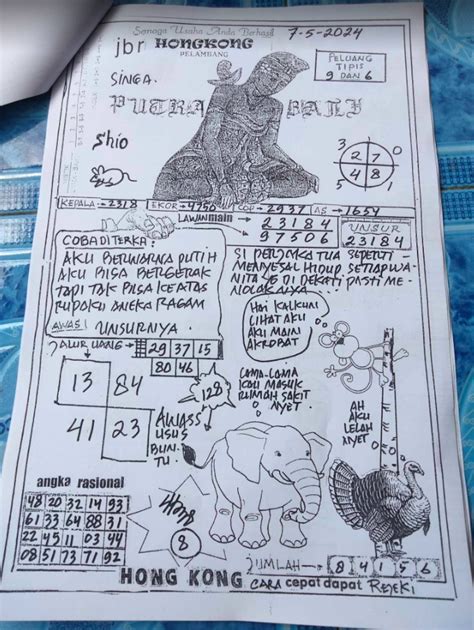 Semoga Usaha Anda Berhasil
7-5-2024
jbr HONGKONG
PALEMBANG
PELUANG
TIPIS
9 DAN 6
SINGA.
PUTRA BALI
Shio
3 2 7 0
5 4 8 1
KEPALA → 2318 EKOR → 4750 COP → 2937 AS → 1654
LAWANMAIN → 23184
97506
UNSUR
23184
COBA DITERKA:
AKU BERWARNA PUTIH
AKU BISA BERGERAK
TAPI TAK BISA KEATAS
RUPAKU ANEKA RAGAM
AWAS! UNSURNYA.
SI PERJAKA TUA SEPERTI
MENYESAL HIDUP. SETIAP WA-
NITA YG DI DEKATI PASTI ME-
NOLAKNYA
JALUR UANG → 29 37 15
80 46
HAI KALKUN
LIHAT AKU
AKU MAIN
AKROBAT
13 84
41 23
128
LAMA-LAMA
KAU MASUK
RUMAH SAKIT
NYET.
AWASS
USUS
BUN-
TU.
AH
AKU
LELAH
NYET
angka rasional
48 20 32 14 93
61 33 64 88 31
22 45 11 03 44
08 51 73 71 92
8
JUMLAH → 8 4 1 5 6
HONG KONG CARA cepat dapat REJEKI